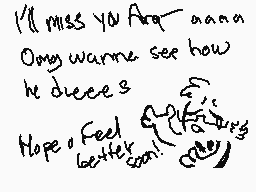 I'll miss you Ara aaaa
Omg wanna see how
he dieees
Hope u Feel
better soon!